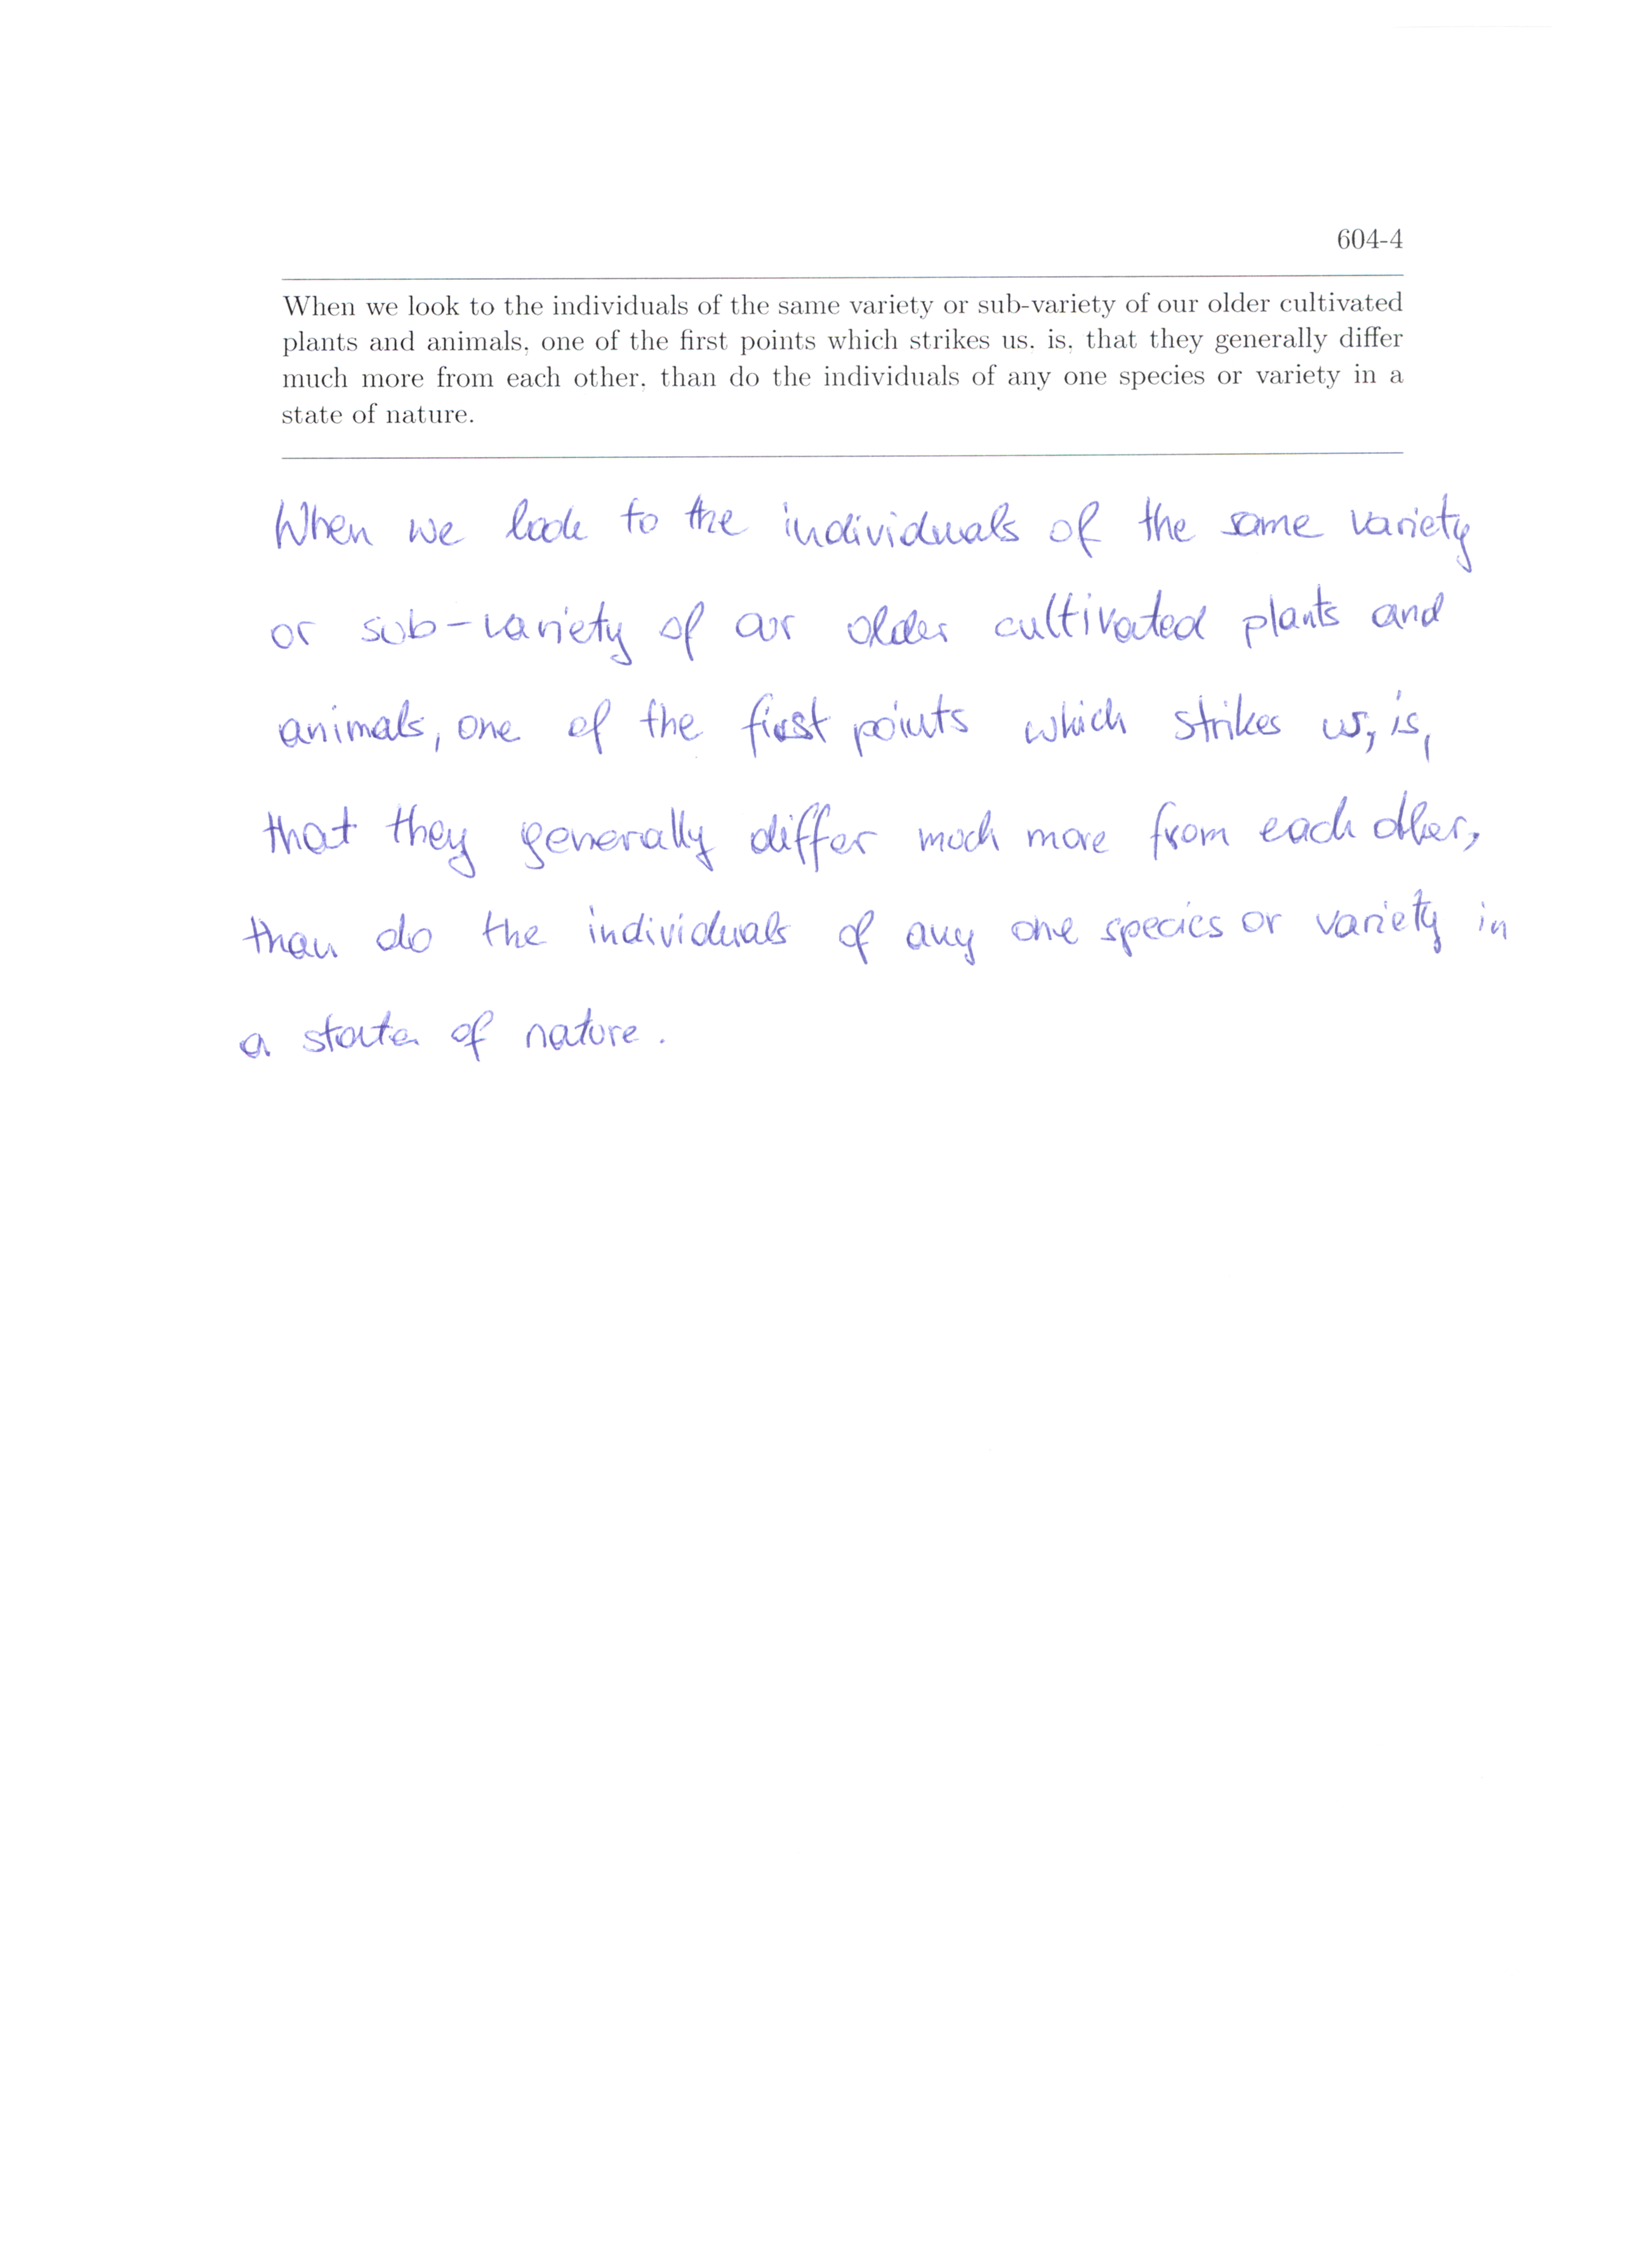 604-4
When we look to the individuals of the same variety or sub-variety of our older cultivated
plants and animals, one of the first points which strikes us, is, that they generally differ
much more from each other, than do the individuals of any one species or variety in a
state of nature.
When we look to the individuals of the same variety
or sub-variety of our older cultivated plants and
animals, one of the first points which strikes us, is,
that they generally differ much more from each other,
than do the individuals of any one species or variety in
a state of nature.